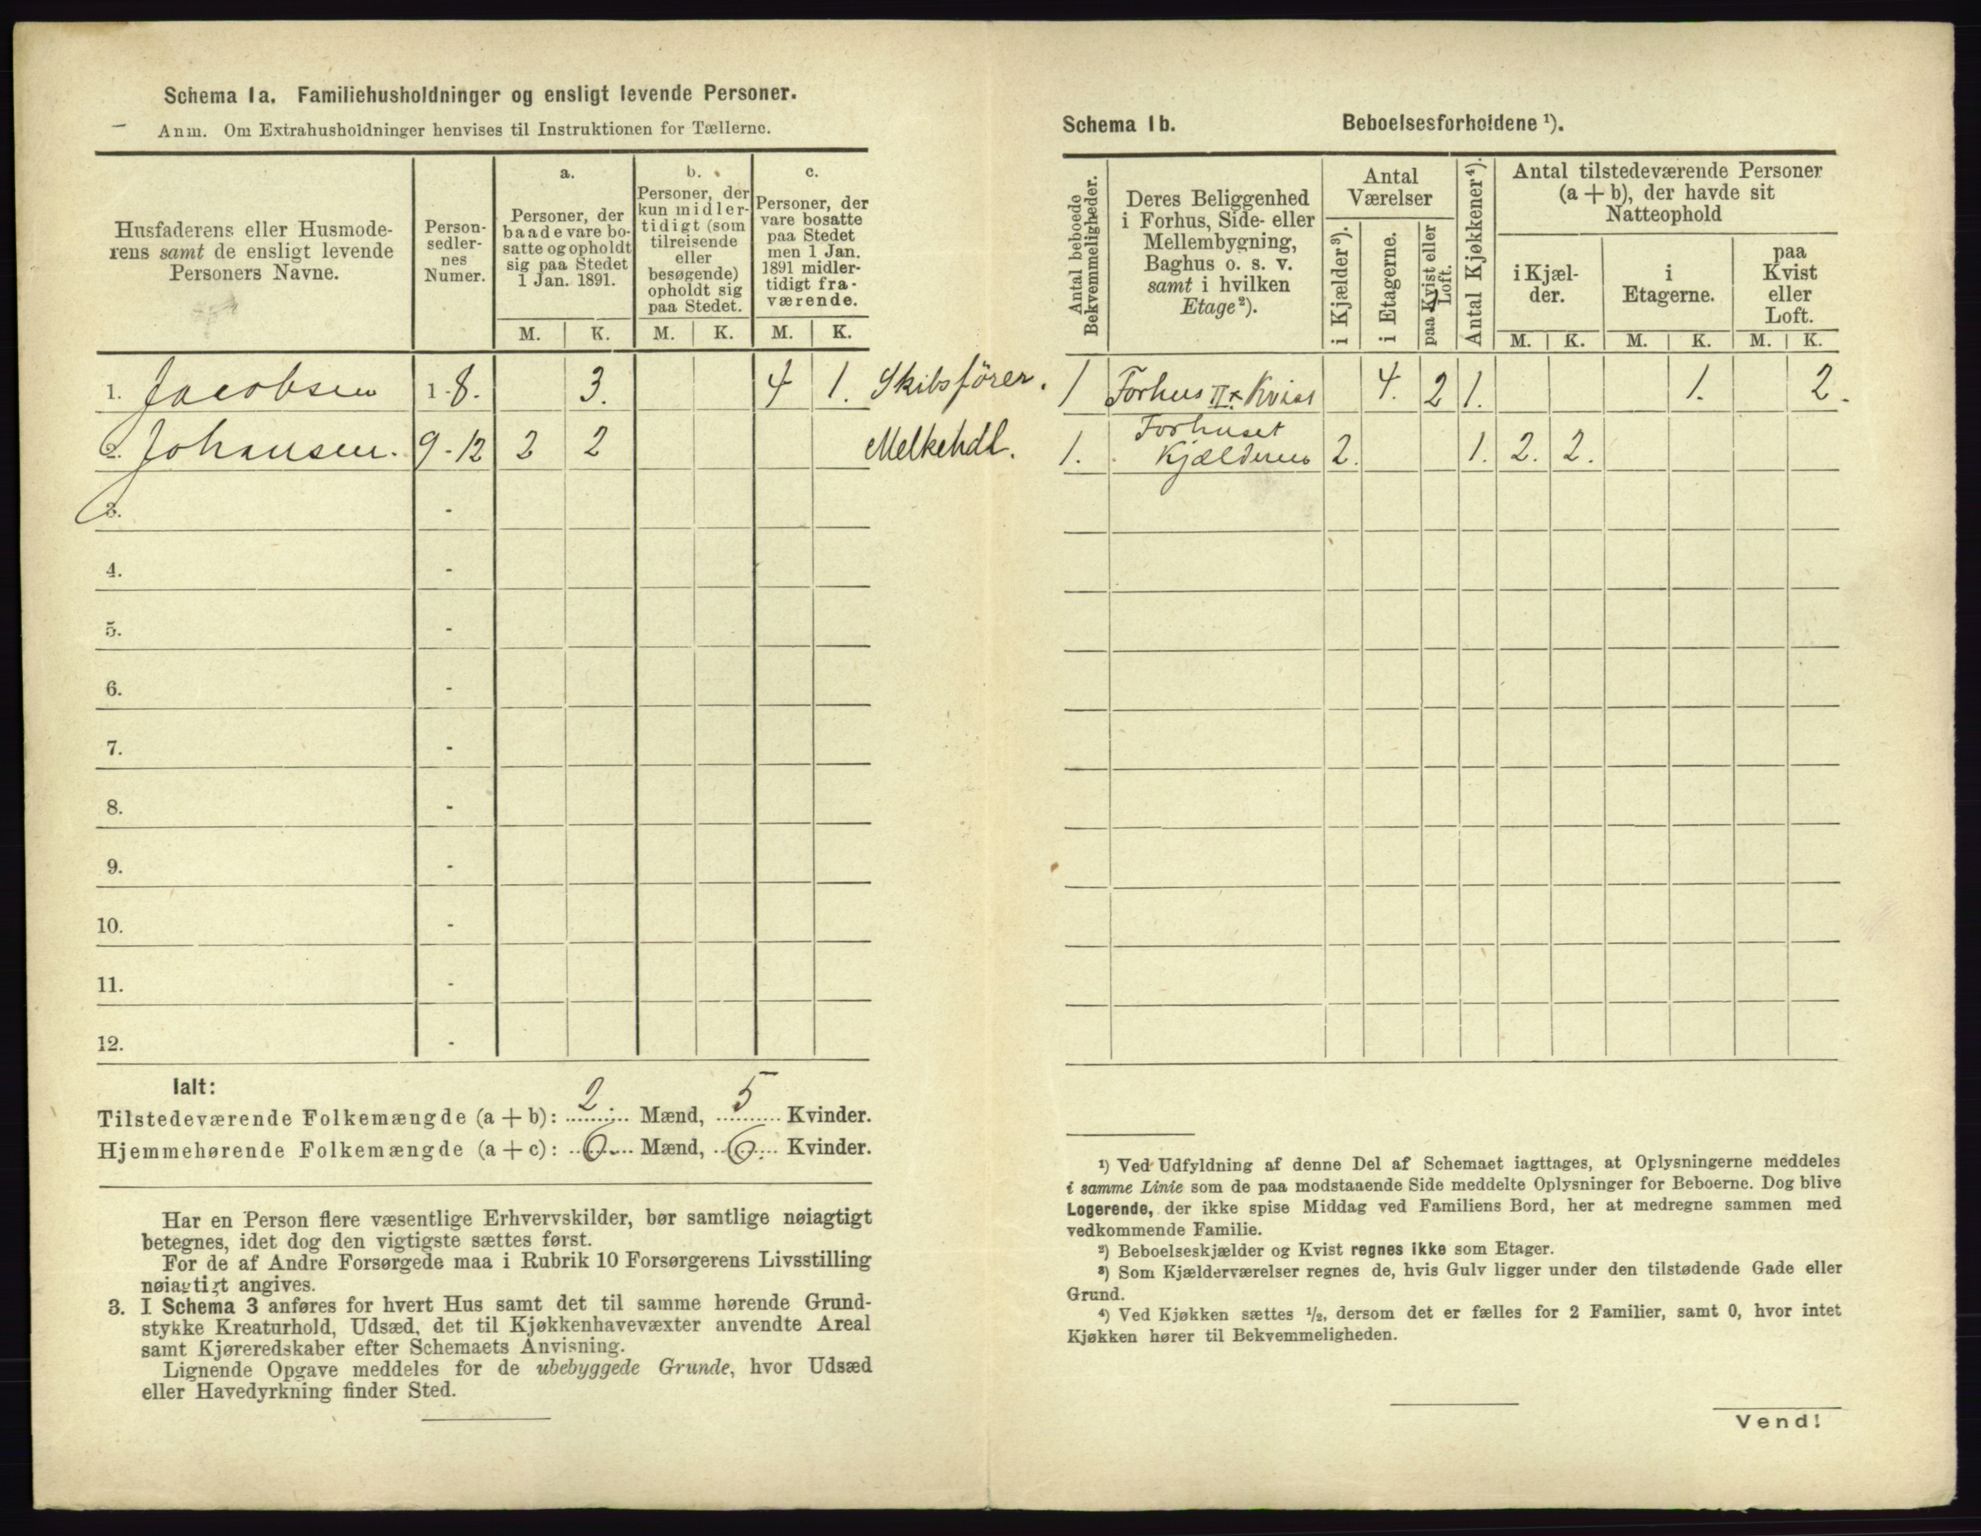 Schema 1a. Familiehusholdninger og ensligt levende Personer.
Anm. Om Extrahusholdninger henvises til Instruktionen for Tællerne.
Husfaderens eller Husmode-
rens samt de ensligt levende
Personers Navne.
Person-
sedler-
nes
Numer.
a.
Personer, der
baade vare bo-
satte og opholdt
sig paa Stedet
1 Jan. 1891.
b.
Personer, der
kun midler-
tidigt (som
tilreisende
eller
besøgende)
opholdt sig
paa Stedet.
c.
Personer, der
vare bosatte
paa Stedet
men 1 Jan.
1891 midler-
tidigt fra-
værende.
M. K. M. K. M. K.
1. Jacobsen 1-8. 3. 4 1. Skibsfører.
2. Johansen. 9-12 2 2 Melkehdl.
3. -
4. -
5. -
6. -
7. -
8. -
9. -
10. -
11. -
12. -
Ialt:
Tilstedeværende Folkemængde (a + b): 2 Mænd, 5 Kvinder.
Hjemmehørende Folkemængde (a + c): 6 Mænd, 6. Kvinder.
Har en Person flere væsentlige Erhvervskilder, bør samtlige nøiagtigt
betegnes, idet dog den vigtigste sættes først.
For de af Andre Forsørgede maa i Rubrik 10 Forsørgerens Livsstilling
nøiagtigt angives.
3. I Schema 3 anføres for hvert Hus samt det til samme hørende Grund-
stykke Kreaturhold, Udsæd, det til Kjøkkenhavevæxter anvendte Areal
samt Kjøreredskaber efter Schemaets Anvisning.
Lignende Opgave meddeles for de ubebyggede Grunde, hvor Udsæd
eller Havedyrkning finder Sted.
Schema 1b. Beboelsesforholdene ¹).
Antal beboede
Bekvemmeligheder.
Deres Beliggenhed
i Forhus, Side- eller
Mellembygning,
Baghus o. s. v.
samt i hvilken
Etage²).
Antal
Værelser
i Kjælder³).
i Etagerne.
paa Kvist eller
Loft.
Antal Kjøkkener⁴).
Antal tilstedeværende Personer
(a + b), der havde sit
Natteophold
i Kjæl-
der.
i
Etagerne.
paa
Kvist
eller
Loft.
M. K. M. K. M. K.
1 Forhus II + Kvist 4. 2 1. 1. 2.
1. Forhuset
Kjælderen 2. 1. 2. 2.
¹) Ved Udfyldning af denne Del af Schemaet iagttages, at Oplysningerne meddeles
i samme Linie som de paa modstaaende Side meddelte Oplysninger for Beboerne. Dog blive
Logerende, der ikke spise Middag ved Familiens Bord, her at medregne sammen med
vedkommende Familie.
²) Beboelseskjælder og Kvist regnes ikke som Etager.
³) Som Kjælderværelser regnes de, hvis Gulv ligger under den tilstødende Gade eller
Grund.
⁴) Ved Kjøkken sættes ½, dersom det er fælles for 2 Familier, samt 0, hvor intet
Kjøkken hører til Bekvemmeligheden.
Vend!